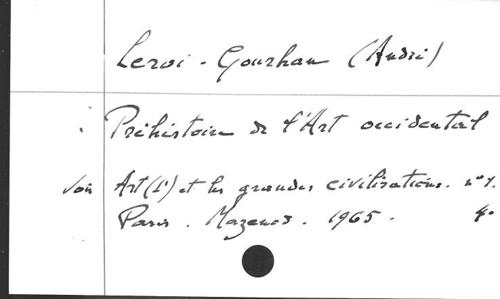 Leroi-Gourhan (André)
Préhistoire de l'Art occidental
Voir Art (L') et les grandes civilisations. n° 1.
Paris. Mazenod. 1965. 4°